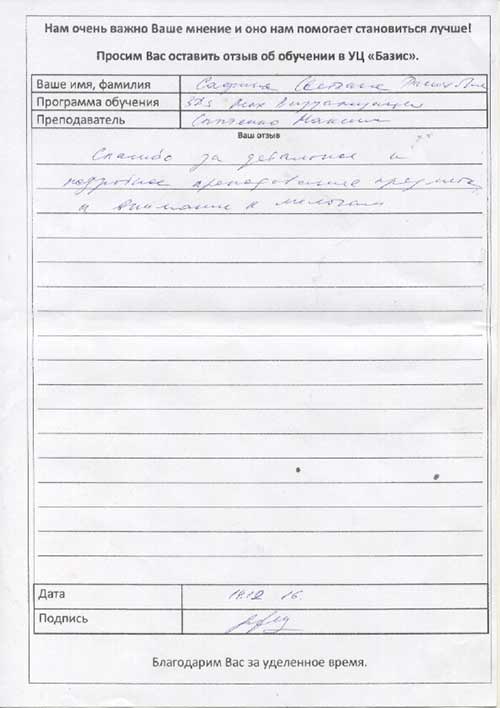 Нам очень важно Ваше мнение и оно нам помогает становиться лучше!
Просим Вас оставить отзыв об обучении в УЦ «Базис».
Ваше имя, фамилия Светлана
Программа обучения 3DS Max Визуализация
Преподаватель Максим
Ваш отзыв
Спасибо за детальное и
подробное преподавание предмета
и внимание к мелочам
Дата 19.12 16.
Подпись
Благодарим Вас за уделенное время.